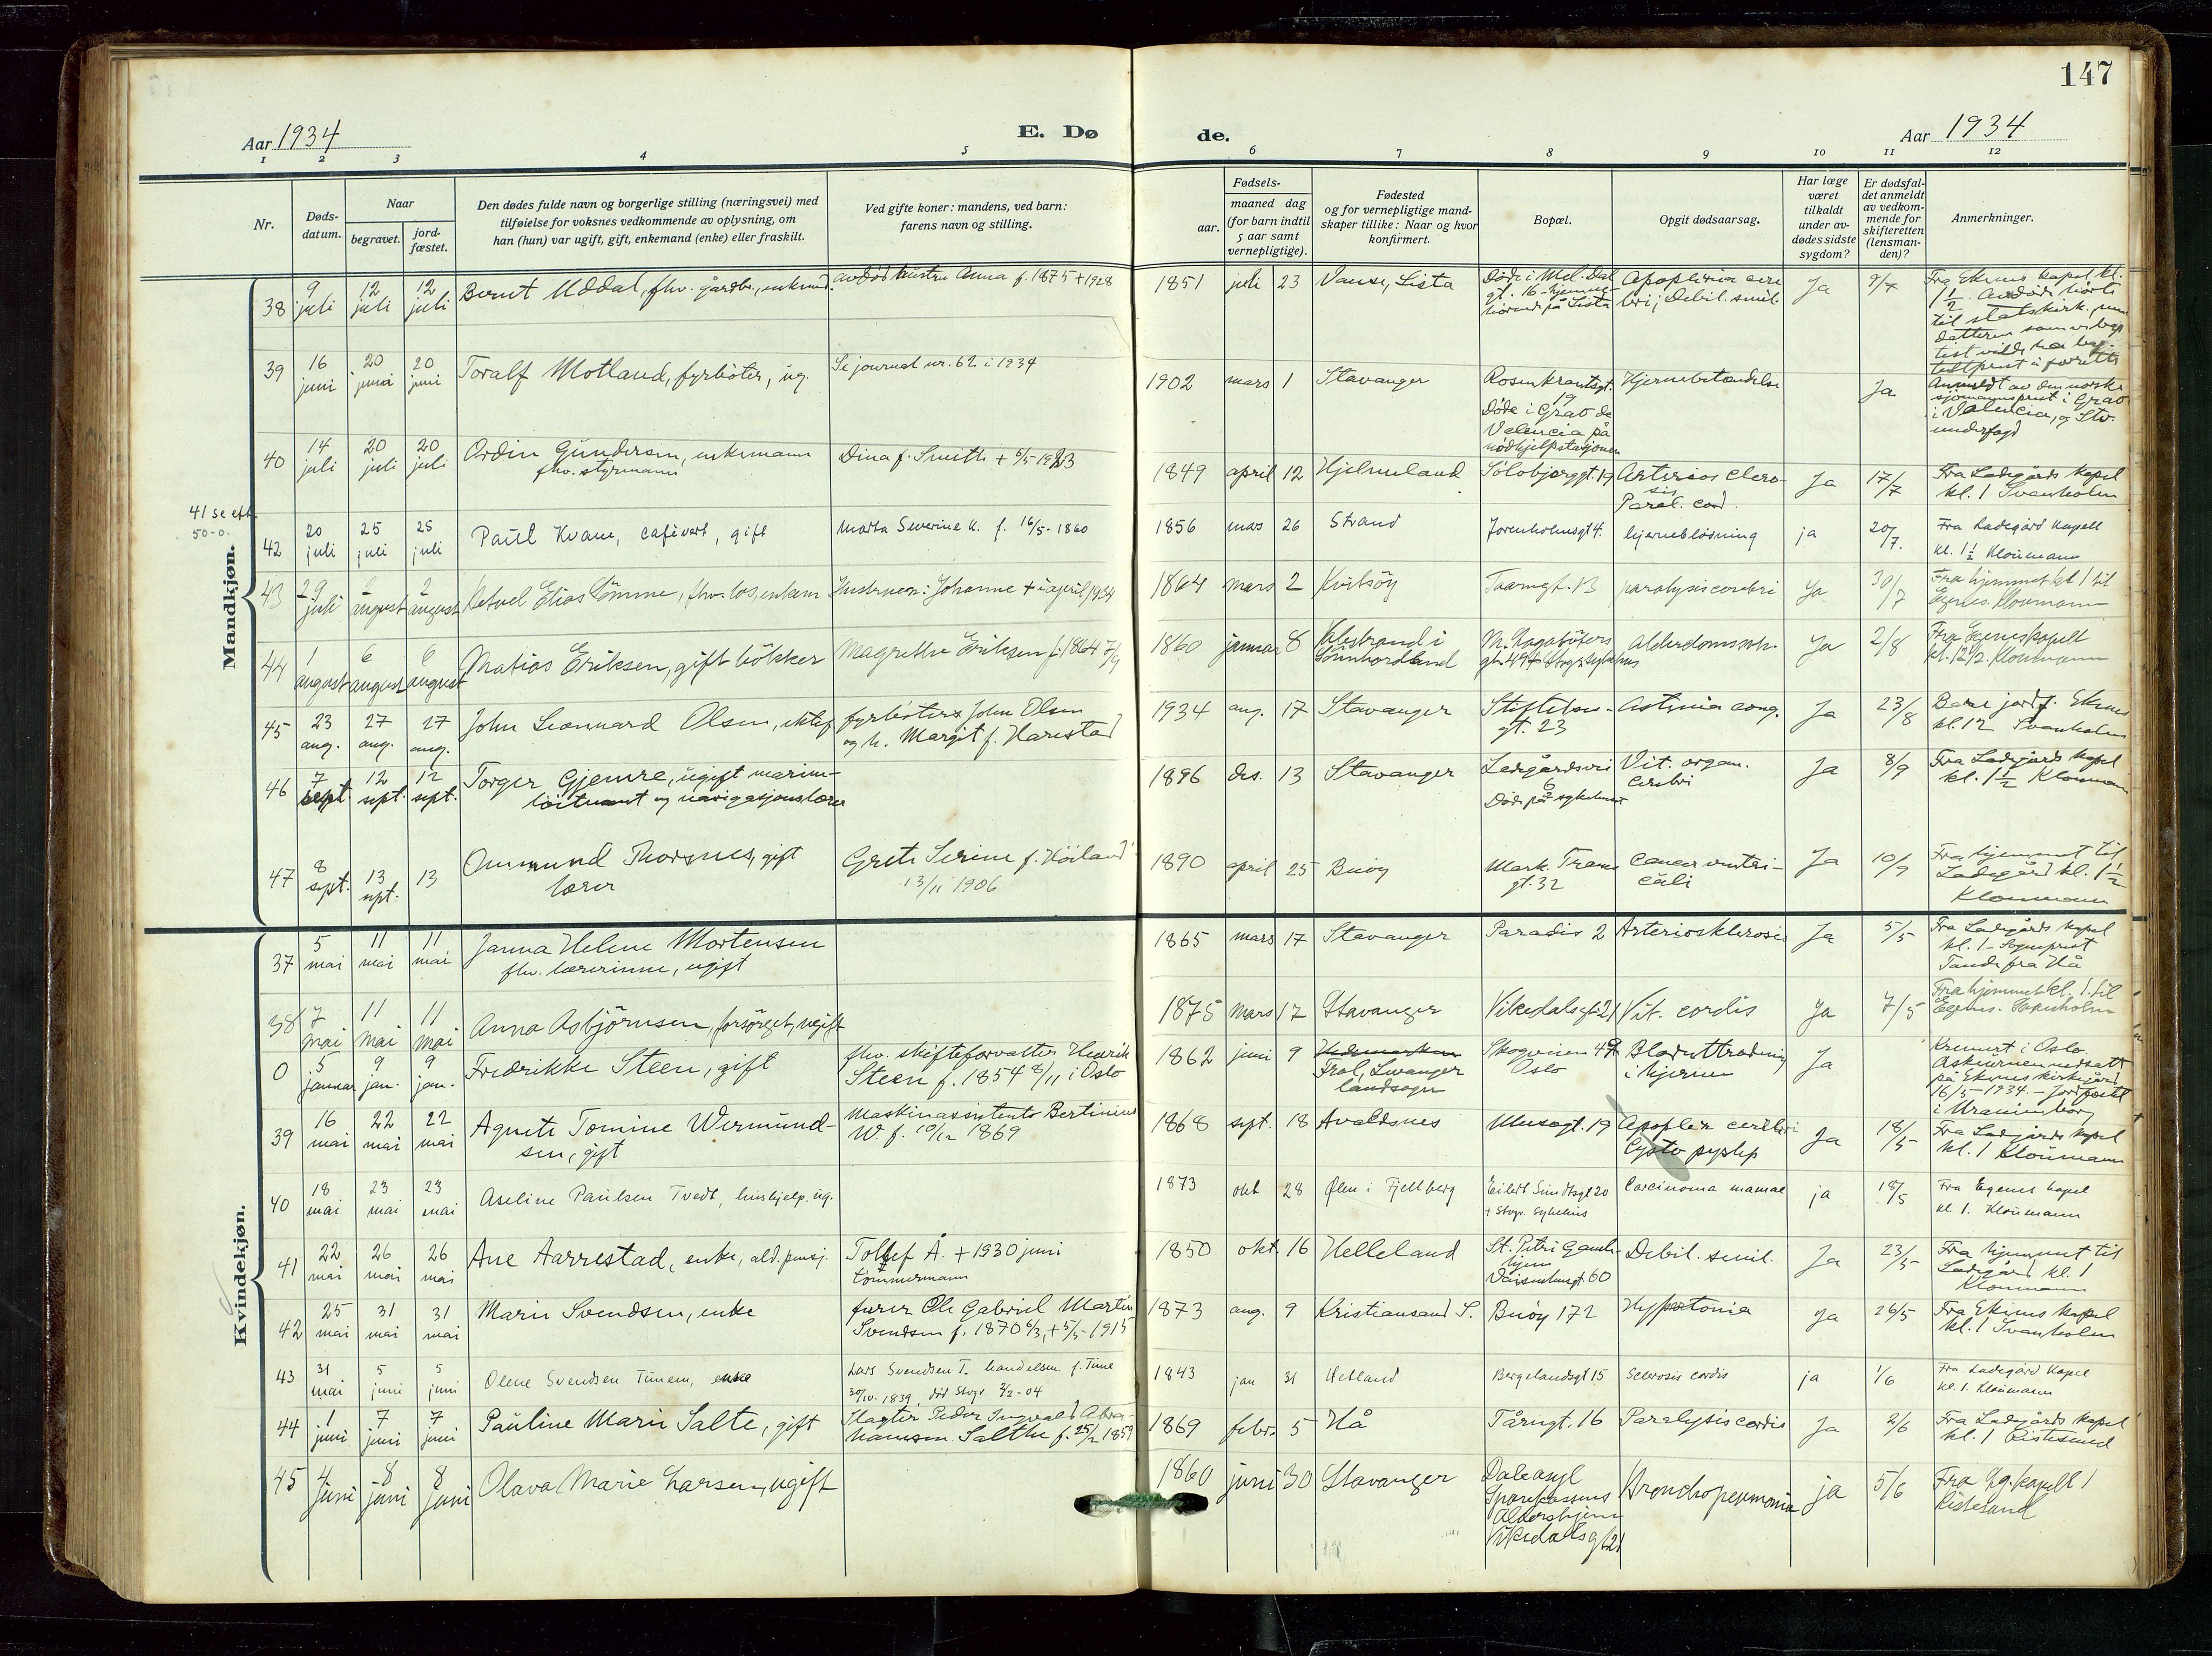 147
Aar 1934
E. Dø
de.
Aar 1934
1 2 3 4 5 6 7 8 9 10 11 12
Nr.
Døds-
datum.
Naar
begravet.
jord-
fæstet.
Den dødes fulde navn og borgerlige stilling (næringsvei) med
tilføielse for voksnes vedkommende av oplysning, om
han (hun) var ugift, gift, enkemand (enke) eller fraskilt.
Ved gifte koner: mandens, ved barn:
farens navn og stilling.
Fødsels-
aar.
maaned dag
(for barn indtil
5 aar samt
vernepligtige).
Fødested
og for vernepligtige mand-
skaper tillike: Naar og hvor
konfirmert.
Bopæl.
Opgit dødsaarsag.
Har læge
været
tilkaldt
under av-
dødes sidste
sygdom?
Er dødsfal-
det anmeldt
av vedkom-
mende for
skifteretten
(lensman-
den)?
Anmerkninger.
Mandkjøn.
38 9 juli 12 juli 12 juli Bernt Uddal, fhv. gårdbr., enkem. avdød hustru Anna f. 1875 + 1928 1851 juli 23 Vanse, Lista
Døde i Mel. Dal
gt. 16 - hjemme-
hörende på Lista
Apoplexia cere
bri; Debil. senil
Ja 9/7
Fra Ekenes kapel kl.
1 1/2. Avdøde hørte
til statskirk. men
datteren som er bap
tist vilde ha bap-
tistprest i forrette
39 16 juni 20 juni 20 juni Toralf Motland, fyrbøter, ug. Se journal nr. 62 i 1934 1902 mars 1 Stavanger
Rosenkrantzgt.
19
Døde i Grao de
Valencia på
nødhjelpstasjonen
Hjernebetændelse
Ja
Anmeldt av den norske
sjömannsprest i Grao
i Valencia, og Stv.
underfogd
40 14 juli 20 juli 20 juli Ordin Gundersen, enkemann
fhv. styrmann
Dina f. Smith + 6/5-1923 1849 april 12 Hjelmeland Sölvbjerggt. 19 Arterios clero-
sis
Paral. cord.
Ja 17/7
Fra Ladegårds kapel
kl. 1 Svanholm
41 se eft.
50-0.
42 20 juli 25 juli 25 juli Paul Kvame, cafévert, gift Marta Severine K. f. 16/5-1860 1856 mars 26 Strand Jorenholmsgt 4. hjerneblødning ja 20/7.
Fra Ladegård kapell
kl. 1 1/2 Kloumann
43 29 juli 2 august 2 august Ketuel Elias Lömme, fhv. los, enkem Hustruen: Johanne + i april 1934 1864 mars 2 Kvitsöy Taarngt. 13 paralysis cerebri Ja 30/7
Fra hjemmet kl 1 til
Egenes. Kloumann
44 1 august 6 august 6 august Matias Eriksen, gift bökker Magrethe Eriksen f. 1864 7/9 1860 januar 8
Valestrand i
Sunnhordland
M. Lagabøters
gt. 49 + Stvgr. Sykehus
Alderdomssvh. Ja 2/8
Fra Egenes kapell
kl. 12 1/2. Kloumann
45 23 aug. 27 aug. 27 aug. John Leonnard Olsen, ektef.
fyrbøters John Olsen
og h. Margit f. Harestad
1934 aug. 17 Stavanger
Stiftelses-
gt. 23
Astenia cong. Ja 23/8
Bare jordf. Ekenes
kl. 12 Svanholm
46 7 sept 12 sept. 12 sept. Torger Gjemre, ugift marine-
löitnant og navigasjonslærer
1896 des. 13 Stavanger
Ladegårdsvei
6
Døde på sykehuset
Vit. organ.
cerebri
Ja 8/9
Fra Ladegårds kapel
kl. 1 1/2 Kloumann
47 8 sept. 13 sept. 13 Ommund Thorsnes, gift
lærer
Grete Serine f. Höiland
13/11 1906
1890 april 25 Buöy
Mark. Trane
gt. 32
Cancer ventri-
culi
Ja 10/9
Fra hjemmet til
Ladegård kl. 1 1/2
Kloumann
Kvindekjøn.
37 5 mai 11 mai 11 mai Janna Helene Mortensen
fhv. lærerinne, ugift
1865 mars 17 Stavanger Paradis 2 Arteriosklerosis Ja 5/5
Fra Ladegårds kapel
kl. 1 - Sogneprest
Tande fra Hå
38 7 mai 11 mai 11 mai Anna Asbjörnsen, forsörget, ugift 1875 mars 17 Stavanger Vikedalsgt. 21 Vit. cordis Ja 7/5
Fra hjemmet kl. 1 til
Egenes. Svanholm
0 5 januar 9 jan. 9 jan. Fredrikke Steen, gift
fhv. skifteforvalter Henrik
Steen f. 1854 8/11 i Oslo
1862 juni 9
Hedemarken
Frol, Levanger
landsogn
Skogveien 49
Oslo
Bloduttredning
i hjernen
Ja
Kremert i Oslo.
Askeurnen nedsatt
på Ekenes kirkegård
16/5-1934. - Jordfestet
i Uranienborg
39 16 mai 22 mai 22 mai Agnete Tomine Wermund-
sen, gift
Maskinassistents Bertinius
W. f. 10/12 1869
1868 sept. 18 Avaldsnes Musegt. 19
Apoplex cerebri
Cysto pyelip
Ja 18/5
Fra Ladegårds kapel
kl. 1 Kloumann
40 18 mai 23 mai 23 mai Aseline Paulsen Tvedt, hushjelp. ug. 1873 okt 28 Ølen i Fjellberg
Eilert Sundtsgt 20
+ Stvgr. Sykehus
Carcinoma mamae ja 18/5
Fra Egenes kapel
kl. 1. Kloumann
41 22 mai 26 mai 26 mai Ane Aarrestad, enke, ald. pensj.
Tollef Å. + 1930 juni
tömmermann
1850 okt. 16 Helleland
St. Petri Gamle-
hjem
Vaisenhusgt. 60
Debil. senil. Ja 23/5
Fra hjemmet til
Ladegård kl. 1
Kloumann
42 25 mai 31 mai 31 mai Marie Svendsen, enke
fører Ole Gabriel Martin
Svendsen f. 1870 6/3, + 5/5-1915
1873 aug. 9 Kristiansand S. Buöy 172 Hypertonia Ja 26/5
Fra Ekenes kapel
kl. 1 Svanholm
43 31 mai 5 juni 5 juni Olene Svendsen Timem, enke
Lars Svendsen T. handelsm. f. Time
30/10. 1839, död Stvgr 2/2-04
1843 jan 31 Hetland Bergelandsgt 15 Sclerosis cordis ja 1/6
Fra Ladegård kapel
kl. 1. Kloumann
44 1 juni 7 juni 7 juni Pauline Marie Salte, gift
Slagter Peder Ingvald Abra-
hamsen Salthe f. 25/2 1859
1869 febr. 5 Hå Tårngt. 16 Paralysis cordis Ja 2/6
Fra Ladegårds kapel
kl. 1 Ristesund
45 4 juni 8 juni 8 juni Olava Marie Larsen, ugift 1860 juni 30 Stavanger
Dale asyl
Sparekassens
Aldershjem
Vikedalsgt 21
Bronchopeumonia ja 5/6
Fra Lg. kapell 1
Risteland